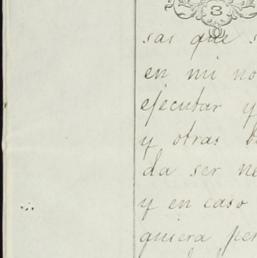 3
sas que s
en mi no
ejecutar y
y otras
da ser ne
y en caso
quiera per